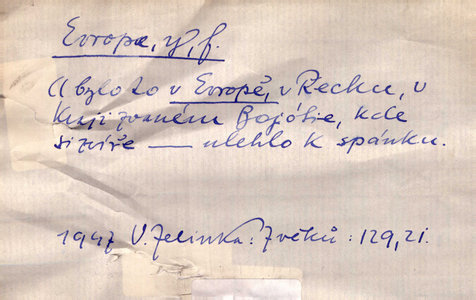 Evropa, y, f.
A bylo to v Evropě, v Řecku, v
kraji zvaném Bojótie, kde
si zvíře — ulehlo k spánku.
1947 V. Jelínka: Z věků: 129, 21.